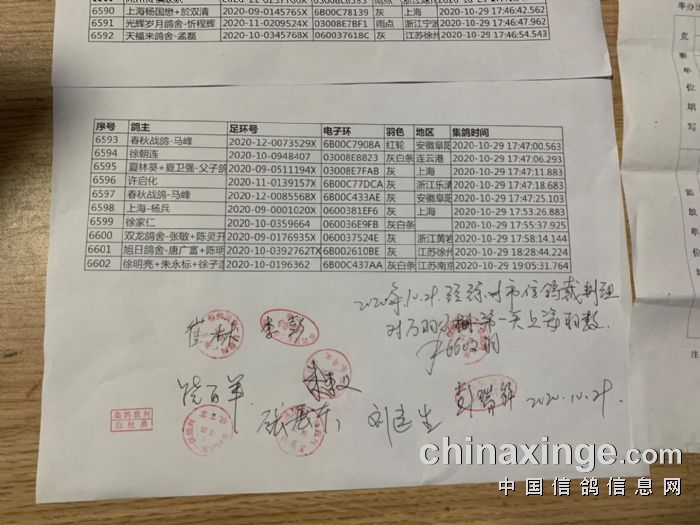 6590 上海杨国想+於双清 2020-09-0145765X 6B00C78139 灰 上海 2020-10-29 17:46:42.562
6591 光辉岁月鸽舍-忻程辉 2020-11-0209524X 03008E7BF1 雨点 浙江宁波 2020-10-29 17:46:47.962
6592 天福来鸽舍-孟磊 2020-10-0345768X 060037618C 灰 江苏徐州 2020-10-29 17:46:54.543
序号 鸽主 足环号 电子环 羽色 地区 集鸽时间
6593 春秋战鸽-马峰 2020-12-0073529X 6B00C7908A 红轮 安徽阜阳 2020-10-29 17:47:00.563
6594 徐朝连 2020-10-0948407 03008E8823 灰白条 连云港 2020-10-29 17:47:06.293
6595 夏林葵+夏卫强-父子鸽 2020-09-0511194X 03008E7FAB 灰 上海 2020-10-29 17:47:11.883
6596 许启化 2020-11-0139157X 6B00C77DCA 灰 浙江乐清 2020-10-29 17:47:18.683
6597 春秋战鸽-马峰 2020-12-0085568X 6B00C433AE 灰 安徽阜阳 2020-10-29 17:47:25.103
6598 上海-杨兵 2020-09-0001020X 0600381EF6 灰 上海 2020-10-29 17:53:26.883
6599 徐家仁 2020-10-0359664 060036E9FB 灰白条 2020-10-29 17:55:37.925
6600 双龙鸽舍-张敏+陈灵开 2020-09-0176935X 060037524E 灰 浙江黄岩 2020-10-29 17:58:14.144
6601 旭日鸽舍-唐广富+陈明 2020-10-0392762TX 6B002610BE 灰 江苏徐州 2020-10-29 18:28:44.224
6602 徐明亮+朱永标+徐子涵 2020-10-0196362 6B00C437AA 灰白条 江苏南京 2020-10-29 19:05:31.764
2020年10.29
市信鸽裁判组
6602羽
李彭
张振东 刘连生 彭瑞年 2020.10.29
集鸽裁判
白杜勇
chinaxinge.com
中国信鸽信息网